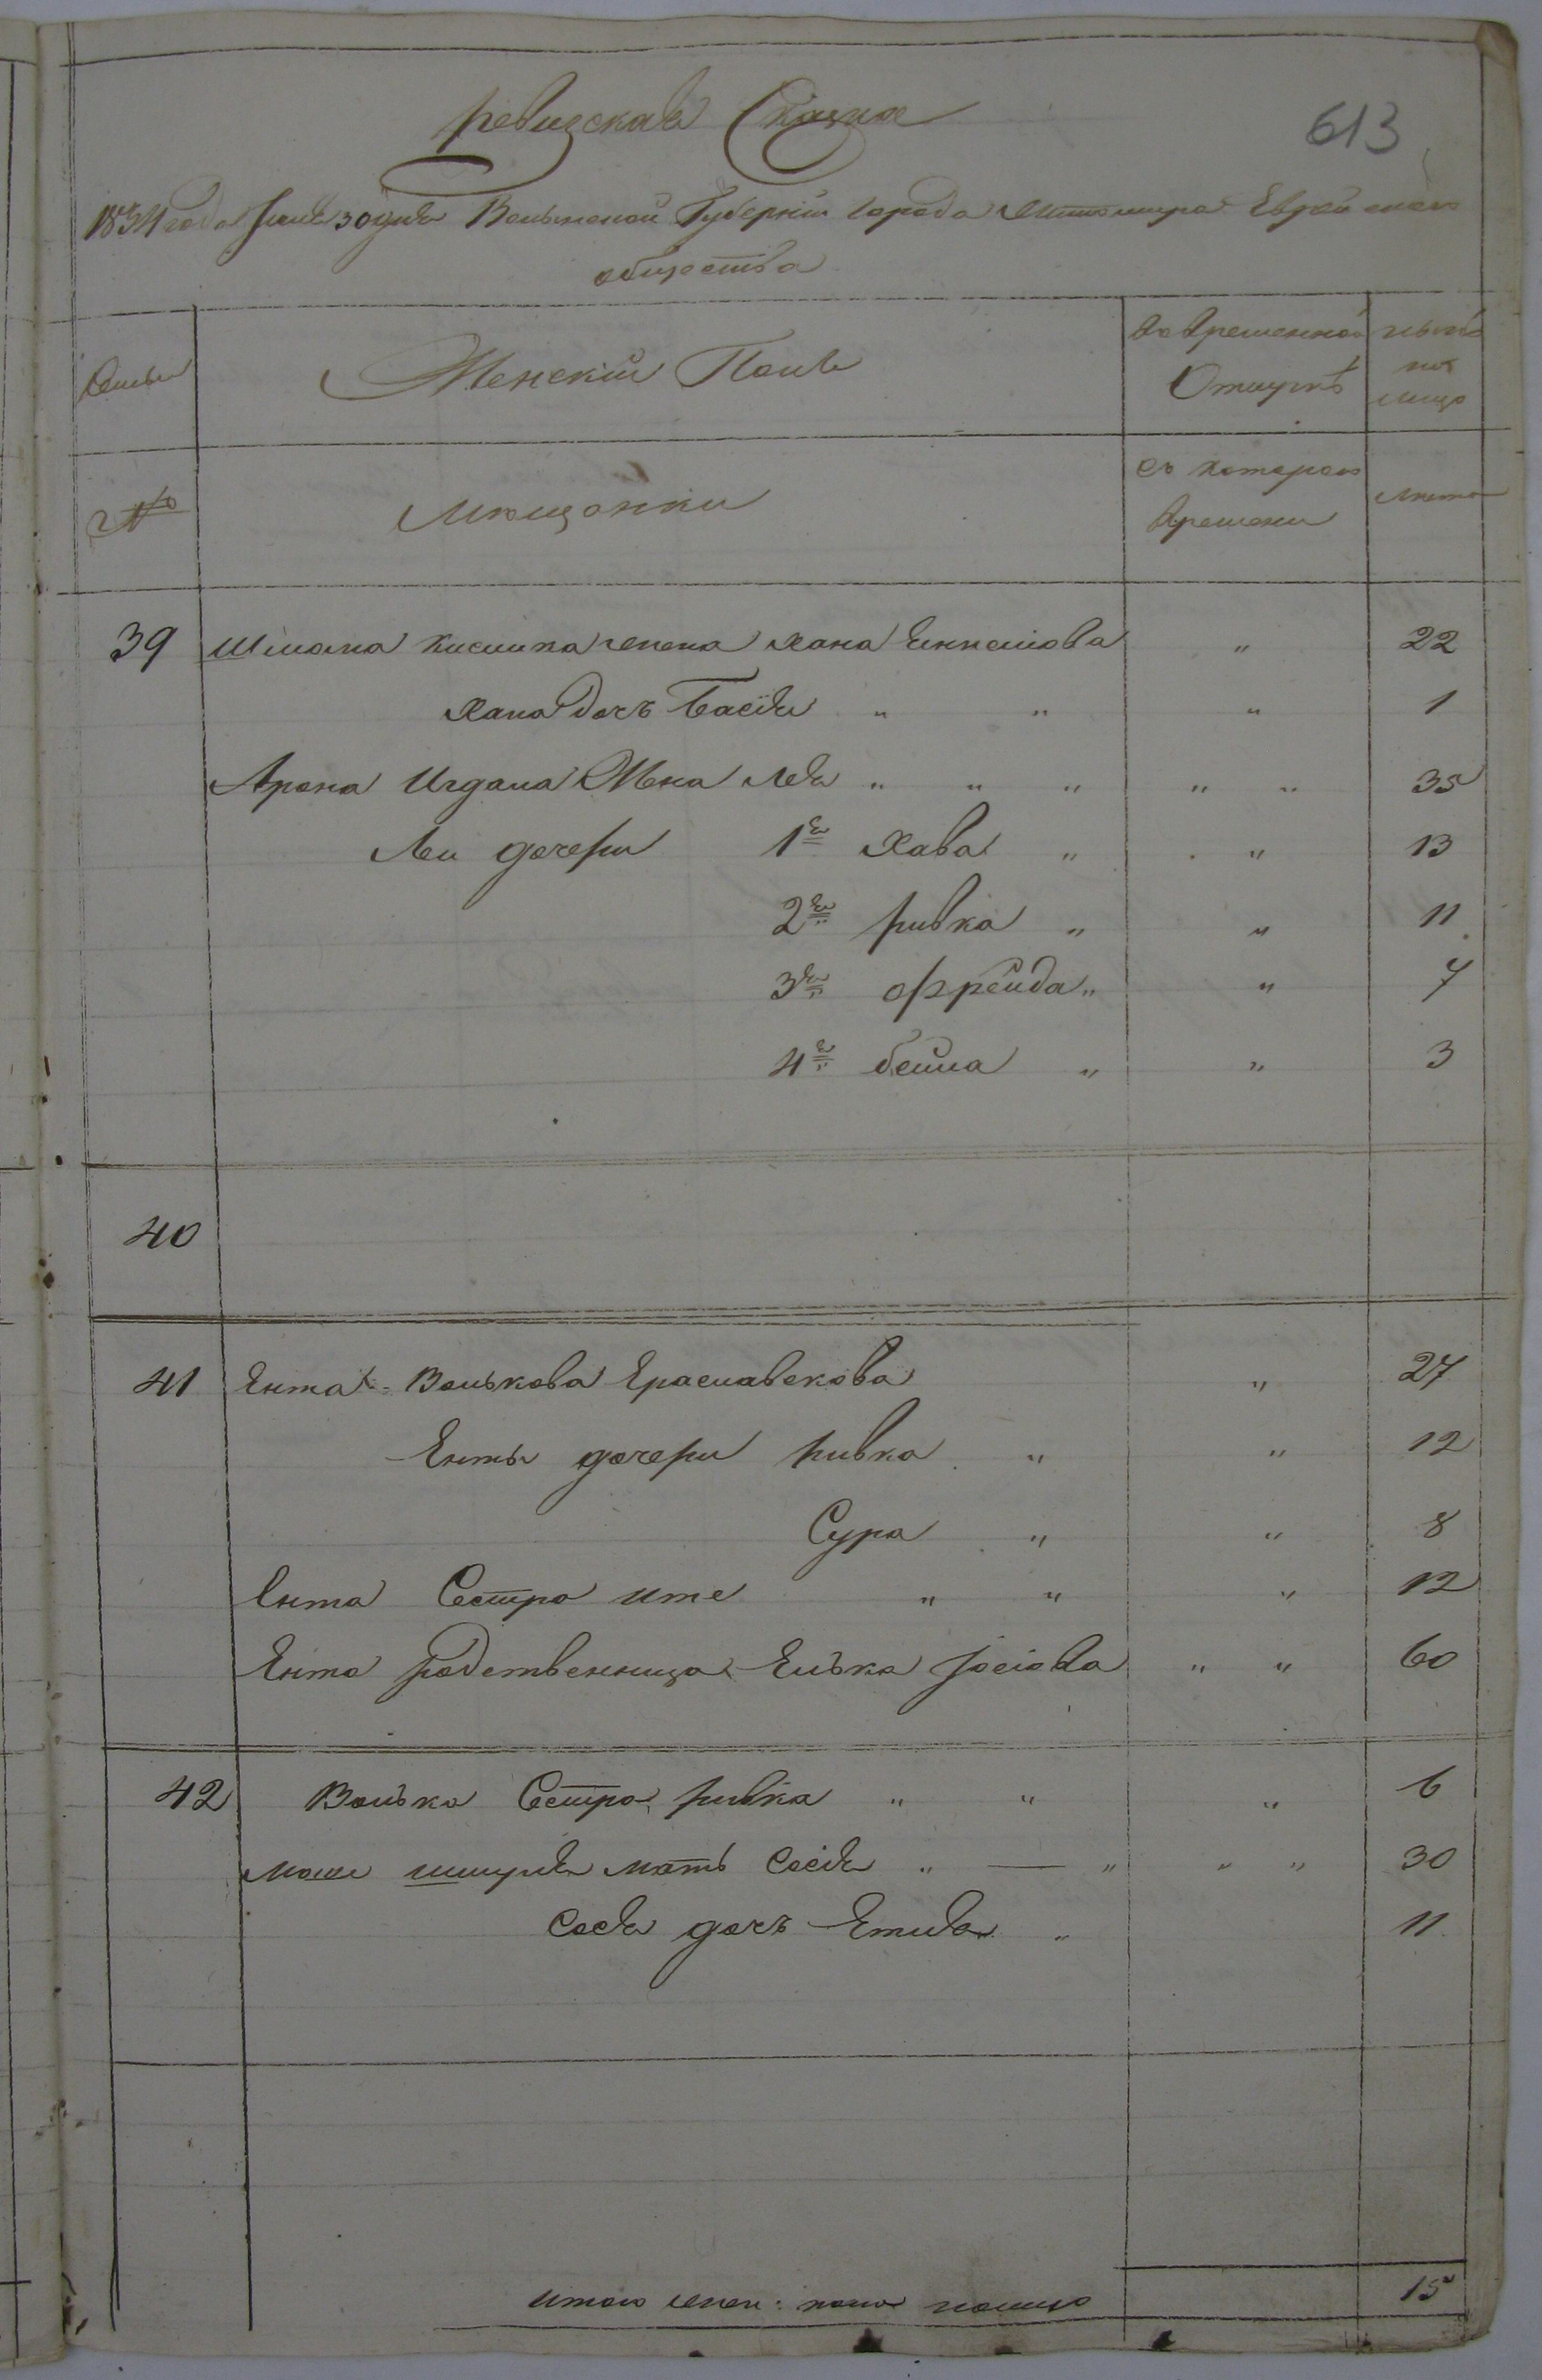 Ревизская Сказка
613
1834 года Июня 30 дня Волынской Губернии Города Житомира Еврейского
общества
Семьи
Женский Полъ
Во временной Отлучкѣ
Нынѣ на лицо
№
Мещанки
Съ котораго времени
Лета
39 Шмома жена Хана " 22
Хана дочъ Бася " " " 1
Арона Игдала Жена Лея " " " " " 35
Леи дочери 1я Хава " " 13
2я Ривка " " 11
3я Фрейда " " 7
4я бейла " " 3
40
41 Ента Волькова Ераславскова " 27
Енты дочери Ривка " " 12
Сура " " 8
Ента Сестра ите " " " 12
Ента родственница Елька Іосіова " " 60
42 Волька Сестра Ривка " " " 6
мать Сося " — " " " 30
Сося дочъ " 11
Итого жен: пола налицо 15